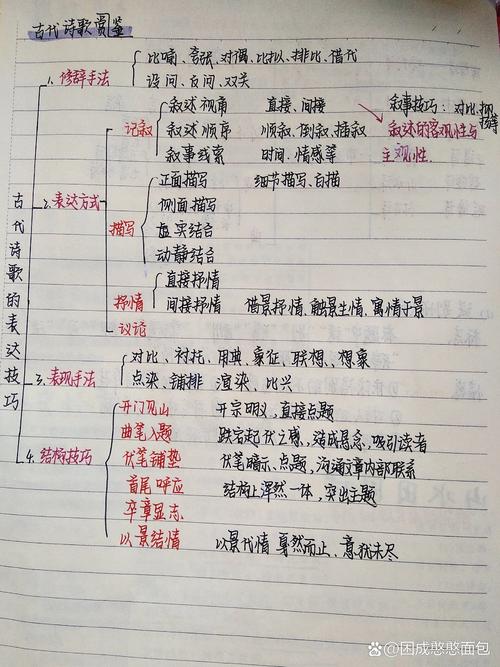 古代诗歌赏鉴
古代诗歌的表达技巧
1. 修辞手法
比喻、夸张、对偶、比拟、排比、借代
设问、反问、双关
2. 表达方式
记叙
叙述视角 直接、间接
叙述顺序 顺叙、倒叙、插叙
叙事线索 时间、情感等
叙事技巧：对比、抑扬等
叙述的客观性与
主观性.
描写
正面描写 细节描写、白描
侧面描写
虚实结合
动静结合
抒情
直接抒情
间接抒情 借景抒情、触景生情、寓情于景
议论
3. 表现手法
对比、衬托、用典、象征、联想、想象
点染、铺排 渲染、比兴
4. 结构技巧
开门见山 开宗明义，直接点题
曲笔入题 跌宕起伏之感，造成悬念，吸引读者
伏笔铺垫 伏笔暗示、点题，沟通文章内部联系
首尾呼应 结构上浑然一体，突出主题
卒章显志
以景结情 以景代情 戛然而止、意犹未尽
百家号/困成憨憨面包